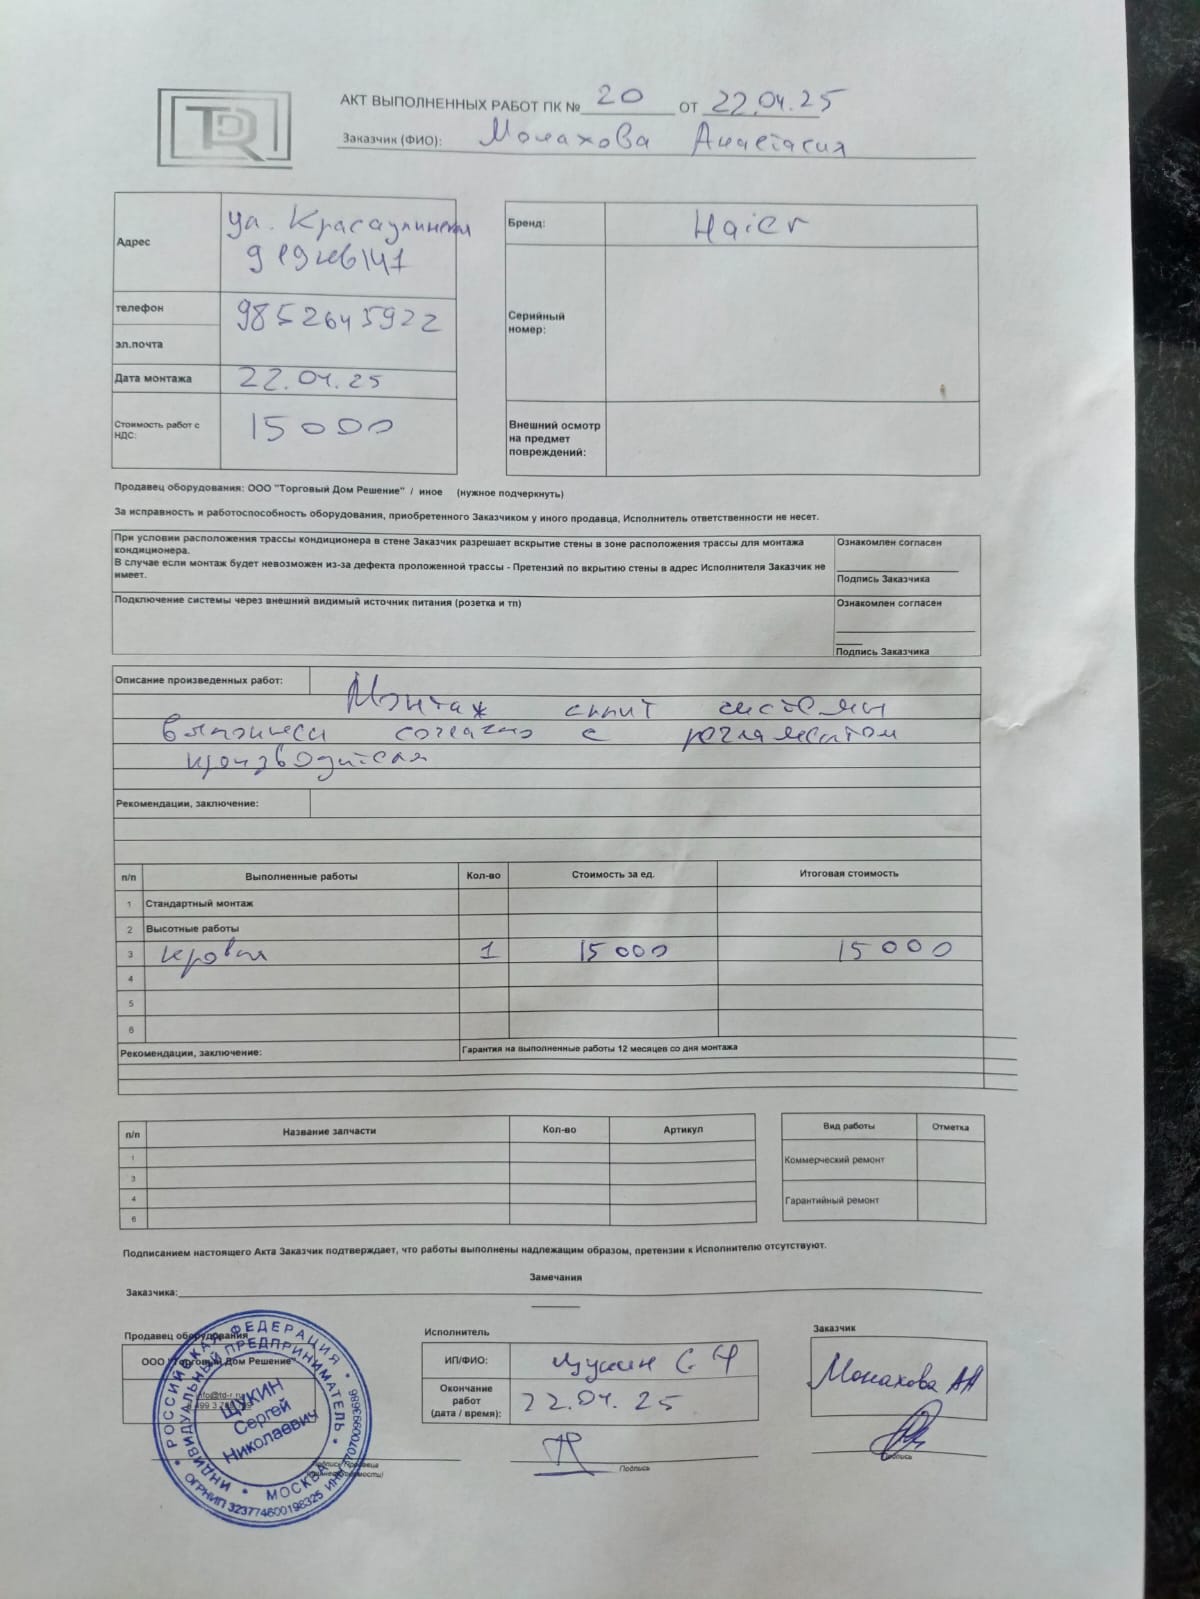 TDR
АКТ ВЫПОЛНЕННЫХ РАБОТ ПК № 20 ОТ 22.04.25
Заказчик (ФИО): Монахова Анастасия
Адрес
ул.
9 кв 141
телефон
9852645922
эл.почта
Дата монтажа 22.04.25
Стоимость работ с НДС: 15000
Бренд: Haier
Серийный номер:
Внешний осмотр на предмет повреждений:
Продавец оборудования: ООО "Торговый Дом Решение" / иное (нужное подчеркнуть)
За исправность и работоспособность оборудования, приобретенного Заказчиком у иного продавца, Исполнитель ответственности не несет.
При условии расположения трассы кондиционера в стене Заказчик разрешает вскрытие стены в зоне расположения трассы для монтажа
кондиционера.
В случае если монтаж будет невозможен из-за дефекта проложенной трассы - Претензий по вкрытию стены в адрес Исполнителя Заказчик не
имеет.
Ознакомлен согласен
Подпись Заказчика
Подключение системы через внешний видимый источник питания (розетка и тп)
Ознакомлен согласен
Подпись Заказчика
Описание произведенных работ:
Монтаж сплит системы
выполнен согласно с регламентом
производителя
Рекомендации, заключение:
п/п Выполненные работы Кол-во Стоимость за ед. Итоговая стоимость
1 Стандартный монтаж
2 Высотные работы
3 кровля 1 15000 15000
4
5
6
Рекомендации, заключение: Гарантия на выполненные работы 12 месяцев со дня монтажа
п/п Название запчасти Кол-во Артикул
1
3
4
6
Вид работы Отметка
Коммерческий ремонт
Гарантийный ремонт
Подписанием настоящего Акта Заказчик подтверждает, что работы выполнены надлежащим образом, претензии к Исполнителю отсутствуют.
Замечания
Заказчика:
Продавец оборудования
ООО "Торговый Дом Решение"
info@td-r.ru
Подпись Продавца
РОССИЙСКАЯ ФЕДЕРАЦИЯ
ИНДИВИДУАЛЬНЫЙ ПРЕДПРИНИМАТЕЛЬ
ЩУКИН
Сергей
Николаевич
МОСКВА
ОГРНИП 323774600198325
Исполнитель
ИП/ФИО: Щукин С.Н
Окончание работ (дата / время): 22.04.25
Подпись
Заказчик
Монахова АА
Подпись